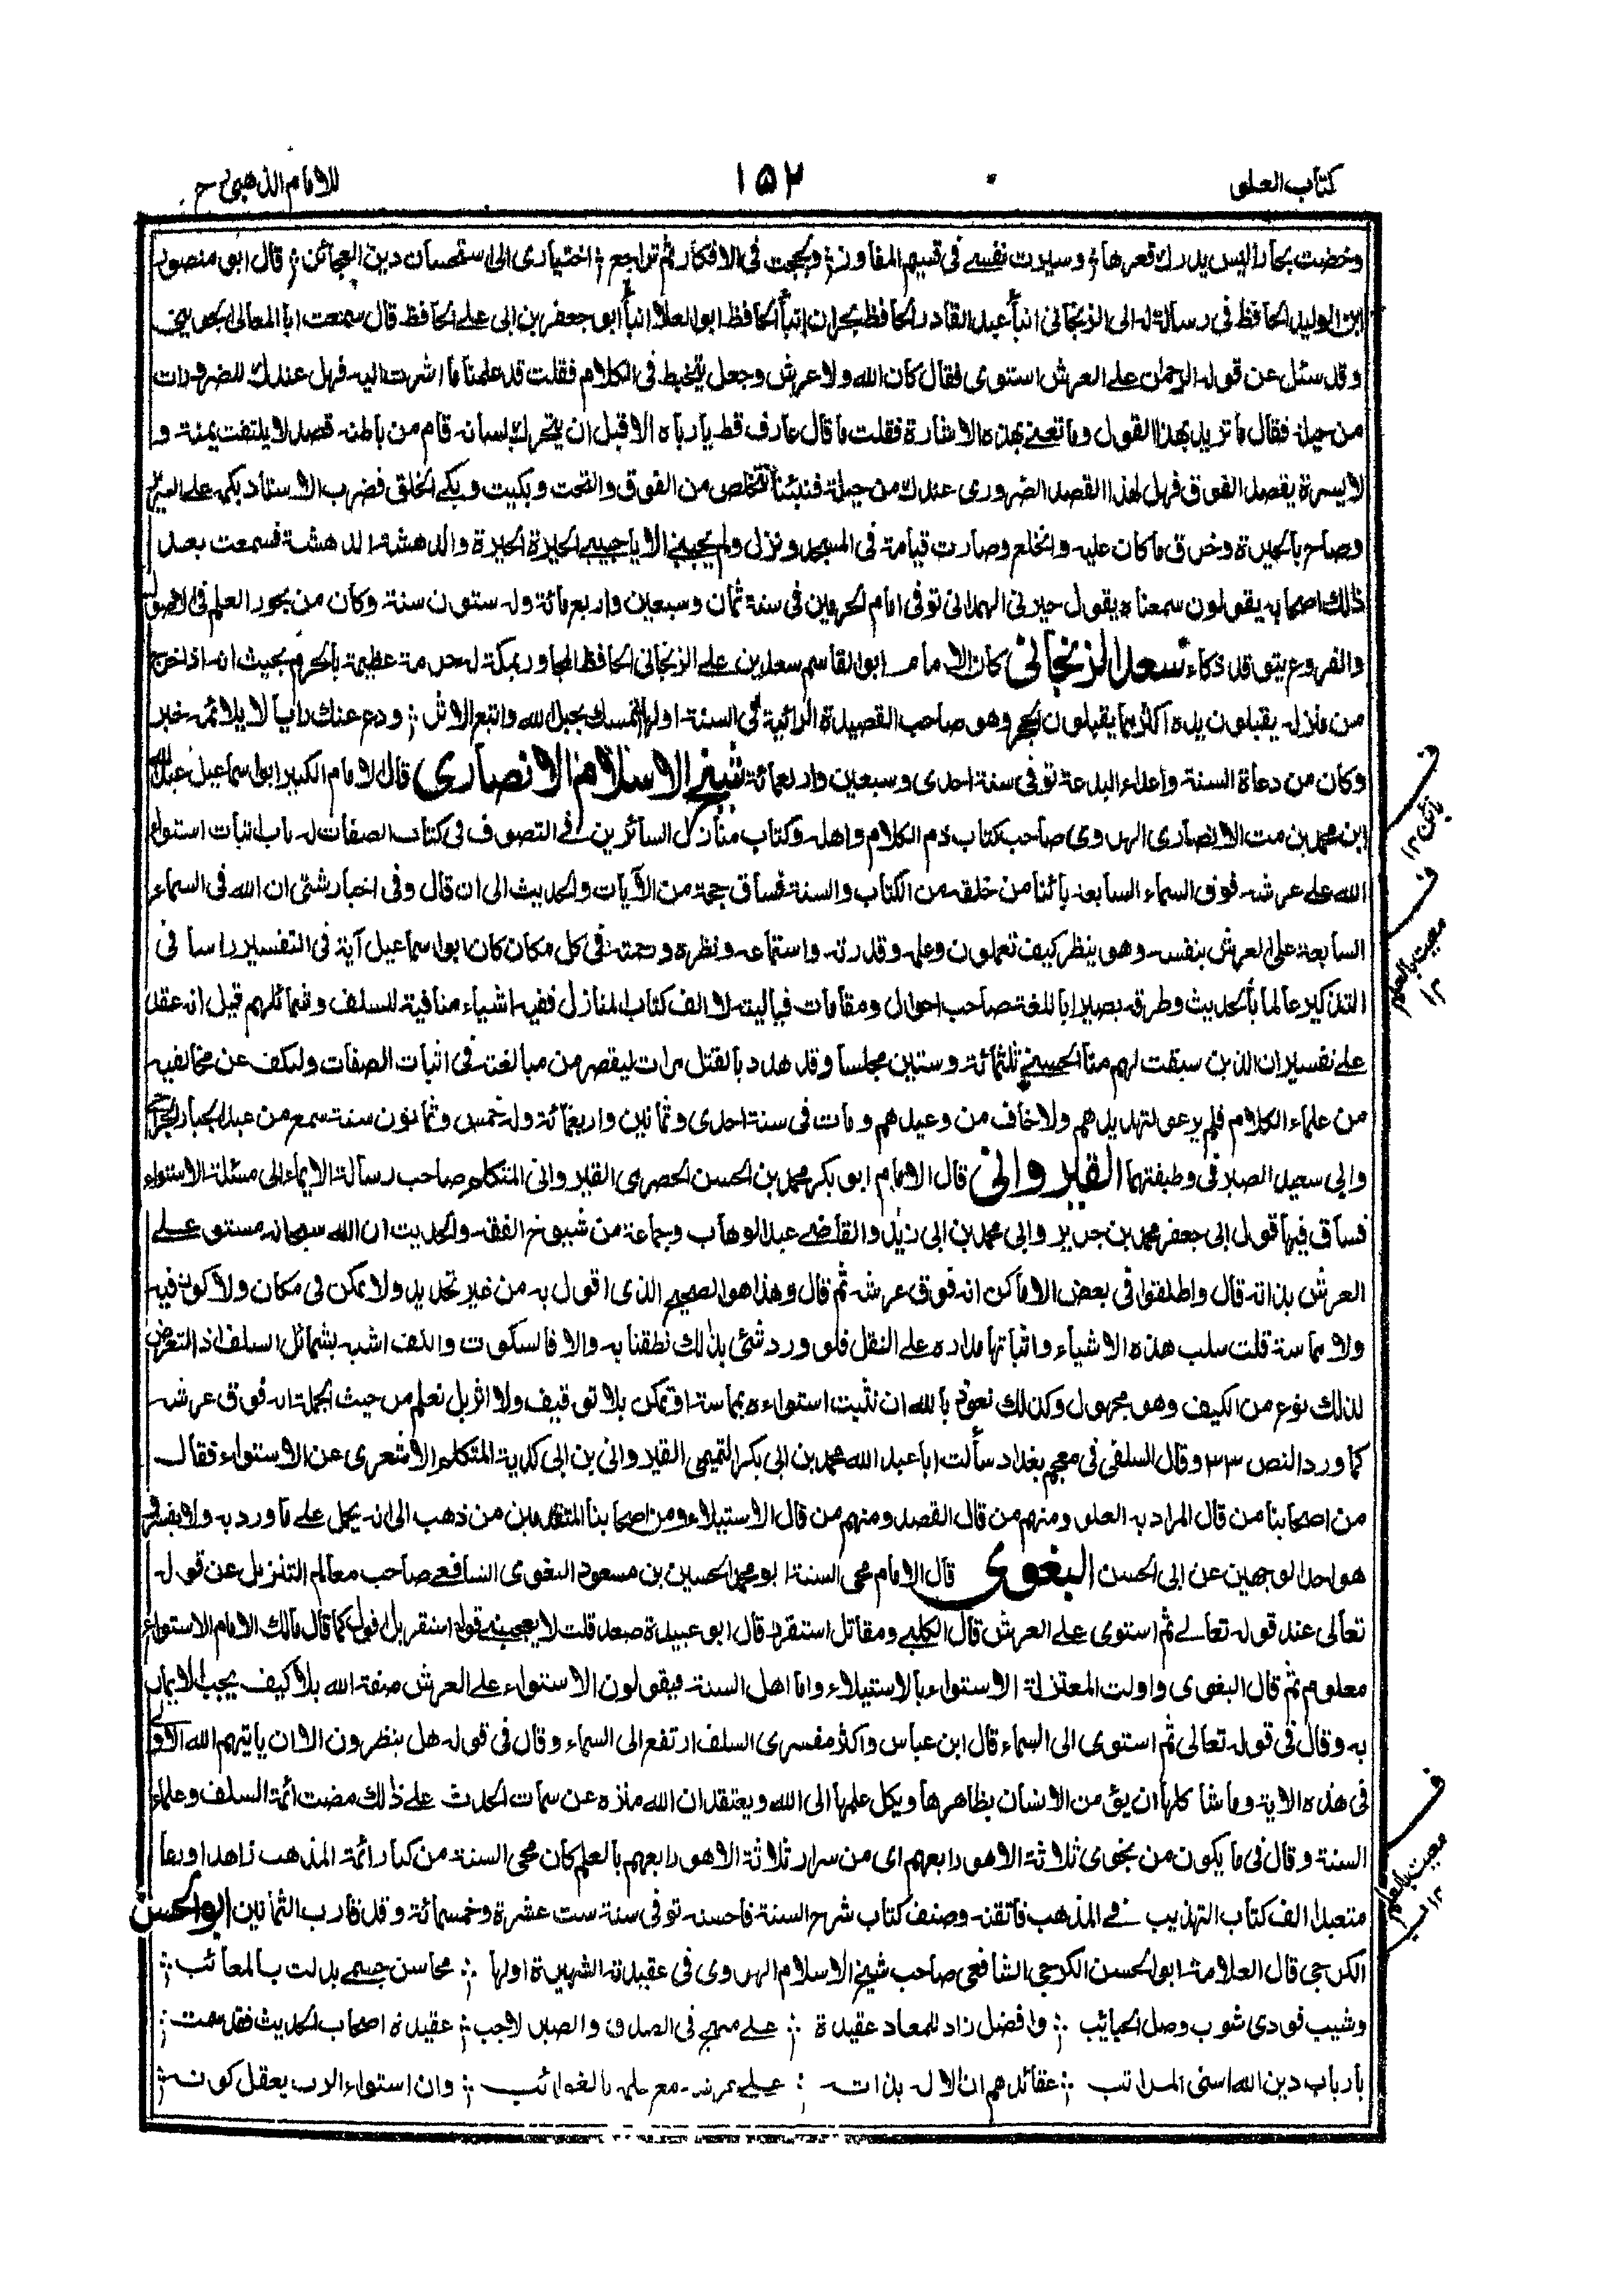 كتاب العلو ١٥٢ للامام الذهبي رح
وخضت بحارا ليس يدرك قعرها ؛ وسيرت نفسي في قسيم المفاوز ؛ ولججت في الافكار ثم تراجع ؛ اختياري الى استحسان دين العجائز ؛ قال ابو منصور
ابن الوليد الحافظ في رسالة له الى الزنجاني انبأ عبد القادر الحافظ بحران انبأ الحافظ ابو العلا انبأ ابو جعفر بن ابى على الحافظ قال سمعت ابا المعالى الجوينى
وقد سئل عن قوله الرحمان على العرش استوى فقال كان الله ولا عرش وجعل يتخبط في الكلام فقلت قد علمنا ما اشرت اليه فهل عندك للضرورات
من حيلة فقال ما تريد بهذا القول وما تعنى بهذه الاشارة فقلت ما قال عارف قط يا رباه الا قبل ان يتحرك لسانه قام من باطنه قصد لا يلتفت يمنة و
لا يسرة يقصد الفوق فهل لهذا القصد الضرورى عندك من حيلة فنبئنا نتخلص من الفوق والتحت وبكيت وبكى الخلق فضرب الاستاد بكمه على السرير
وصاح بالحيرة وخرق ما كان عليه وانخلع وصارت قيامة في المسجد ونزل ولم يجبنى الا يا حبيبى الحيرة الحيرة والدهشة الدهشة فسمعت بعد
ذلك اصحابه يقولون سمعناه يقول حيرنى الهمدانى توفى امام الحرمين في سنة ثمان وسبعين واربع مائة وله ستون سنة وكان من بحور العلم في الاصول
والفروع يتوقد ذكاء سعد الزنجاني كان الامام ابو القاسم سعد بن على الزنجانى الحافظ المجاور بمكة له حرمة عظيمة بالحرم بحيث انه اذا خرج
من منزله يقبلون يده اكثر مما يقبلون الحجر وهو صاحب القصيدة الرائية في السنة اولها تمسك بحبل الله واتبع الاثر ؛ ودع عنك رايا لا يلائمه خبر
وكان من دعاة السنة واعداء البدعة توفى سنة احدى وسبعين واربعمائة شيخ الاسلام الانصارى قال الامام الكبير ابو اسماعيل عبد الله
ابن محمد بن مت الانصارى الهروى صاحب كتاب ذم الكلام واهله وكتاب منازل السائرين في التصوف في كتاب الصفات له باب اثبات استواء
الله على عرشه فوق السماء السابعة بائنا من خلقه من الكتاب والسنة فساق حجة من الآيات والحديث الى ان قال وفى اخبار شتى ان الله في السماء
السابعة على العرش بنفسه وهو ينظر كيف تعملون وعلمه وقدرته واستماعه ونظره ورحمته في كل مكان كان ابو اسماعيل آية في التفسير راسا في
التذكير عالما بالحديث وطرقه بصيرا باللغة صاحب احوال ومقامات فياليته لا الف كتاب المنازل ففيه اشياء منافية للسلف وشمائلهم قيل انه عقد
على تفسير ان الذين سبقت لهم منا الحسنى ثلثمائة وستين مجلسا وقد هدد بالقتل مرات ليقصر من مبالغته في اثبات الصفات وليكف عن مخالفيه
من علماء الكلام فلم يرعو لتهديدهم ولا خاف من وعيدهم ومات في سنة احدى وثمانين واربعمائة وله خمس وثمانون سنة سمع من عبد الجبار الجراحى
وابى سعيد الصيرفى وطبقتهما القيروانى قال الامام ابو بكر محمد بن الحسن الحصرى القيروانى المتكلم صاحب رسالة الايماء الى مسئلة الاستواء
فساق فيها قول ابى جعفر محمد بن جرير وابى محمد بن ابى زيد والقاضى عبد الوهاب وجماعة من شيوخ الفقه والحديث ان الله سبحانه مستو على
العرش بذاته قال واطلقوا في بعض الاماكن انه فوق عرشه ثم قال وهذا هو الصحيح الذى اقول به من غير تحديد ولا تمكن في مكان ولا كون فيه
ولا مماسة قلت سلب هذه الاشياء واثباتها مداره على النقل فلو ورد شئ بذلك نطقنا به والا فالسكوت والكف اشبه بشمائل السلف اذ التعرض
لذلك نوع من الكيف وهو مجهول وكذلك نعوذ بالله ان نثبت استواءه بمماسة او تمكن بلا توقيف ولا اثر بل نعلم من حيث الجملة انه فوق عرشه
كما ورد النص ٣٣ وقال السلفى في معجم بغداد سألت ابا عبد الله محمد بن ابى بكر التميمى القيروانى بن ابى كدية المتكلم الاشعرى عن الاستواء فقال
من اصحابنا من قال المراد به العلو ومنهم من قال القصد ومنهم من قال الاستيلاء ومن اصحابنا المتقدمين من ذهب الى انه يحمل على ما ورد به ولا يفسر و
هو احد الوجهين عن ابى الحسن البغوى قال الامام محى السنة ابو محمد الحسين بن مسعود البغوى الشافعى صاحب معالم التنزيل عن قوله
تعالى عند قوله تعالى ثم استوى على العرش قال الكلبى ومقاتل استقر قال ابو عبيدة صعد قلت لا يعجبنى قوله استقر بل اقول كما قال مالك الامام الاستواء
معلوم ثم قال البغوى واولت المعتزلة الاستواء بالاستيلاء واما اهل السنة فيقولون الاستواء على العرش صفة الله بلا كيف يجب الايمان
به وقال في قوله تعالى ثم استوى الى السماء قال ابن عباس واكثر مفسرى السلف ارتفع الى السماء وقال في قوله هل ينظرون الا ان ياتيهم الله الاولى
في هذه الاية وما شاكلها ان يؤمن الانسان بظاهرها ويكل علمها الى الله ويعتقد ان الله منزه عن سمات الحدث على ذلك مضت ائمة السلف وعلماء
السنة وقال في ما يكون من نجوى ثلاثة الا هو رابعهم اى من سرار ثلاثة الا هو رابعهم بالعلم كان محى السنة من كبار ائمة المذهب زاهدا ورعا
متعبدا الف كتاب التهذيب في المذهب فاتقنه وصنف كتاب شرح السنة فاحسنه توفى سنة ست عشرة وخمسمائة وقد قارب الثمانين ابو الحسن
الكرجى قال العلامة ابو الحسن الكرجى الشافعى صاحب شيخ الاسلام الهروى في عقيدته الشهيرة اولها ؛ محاسن جسمى بدلت بالمعائب ؛
وشيب فودى شوب وصل الحبائب ؛ وافضل زاد للمعاد عقيدة ؛ على منهج في الصدق والصبر لاحب ؛ عقيدة اصحاب الحديث فقد سمت ؛
بارباب دين الله اسنى المراتب ؛ عقائدهم ان الاله بذاته ؛ على عرشه مع علمه بالغوائب ؛ وان استواء الرب يعقل كونه ؛
ف
بائن ١٢
ف
معيت بالعلم
١٢
ف
معيت بالعلم
١٢